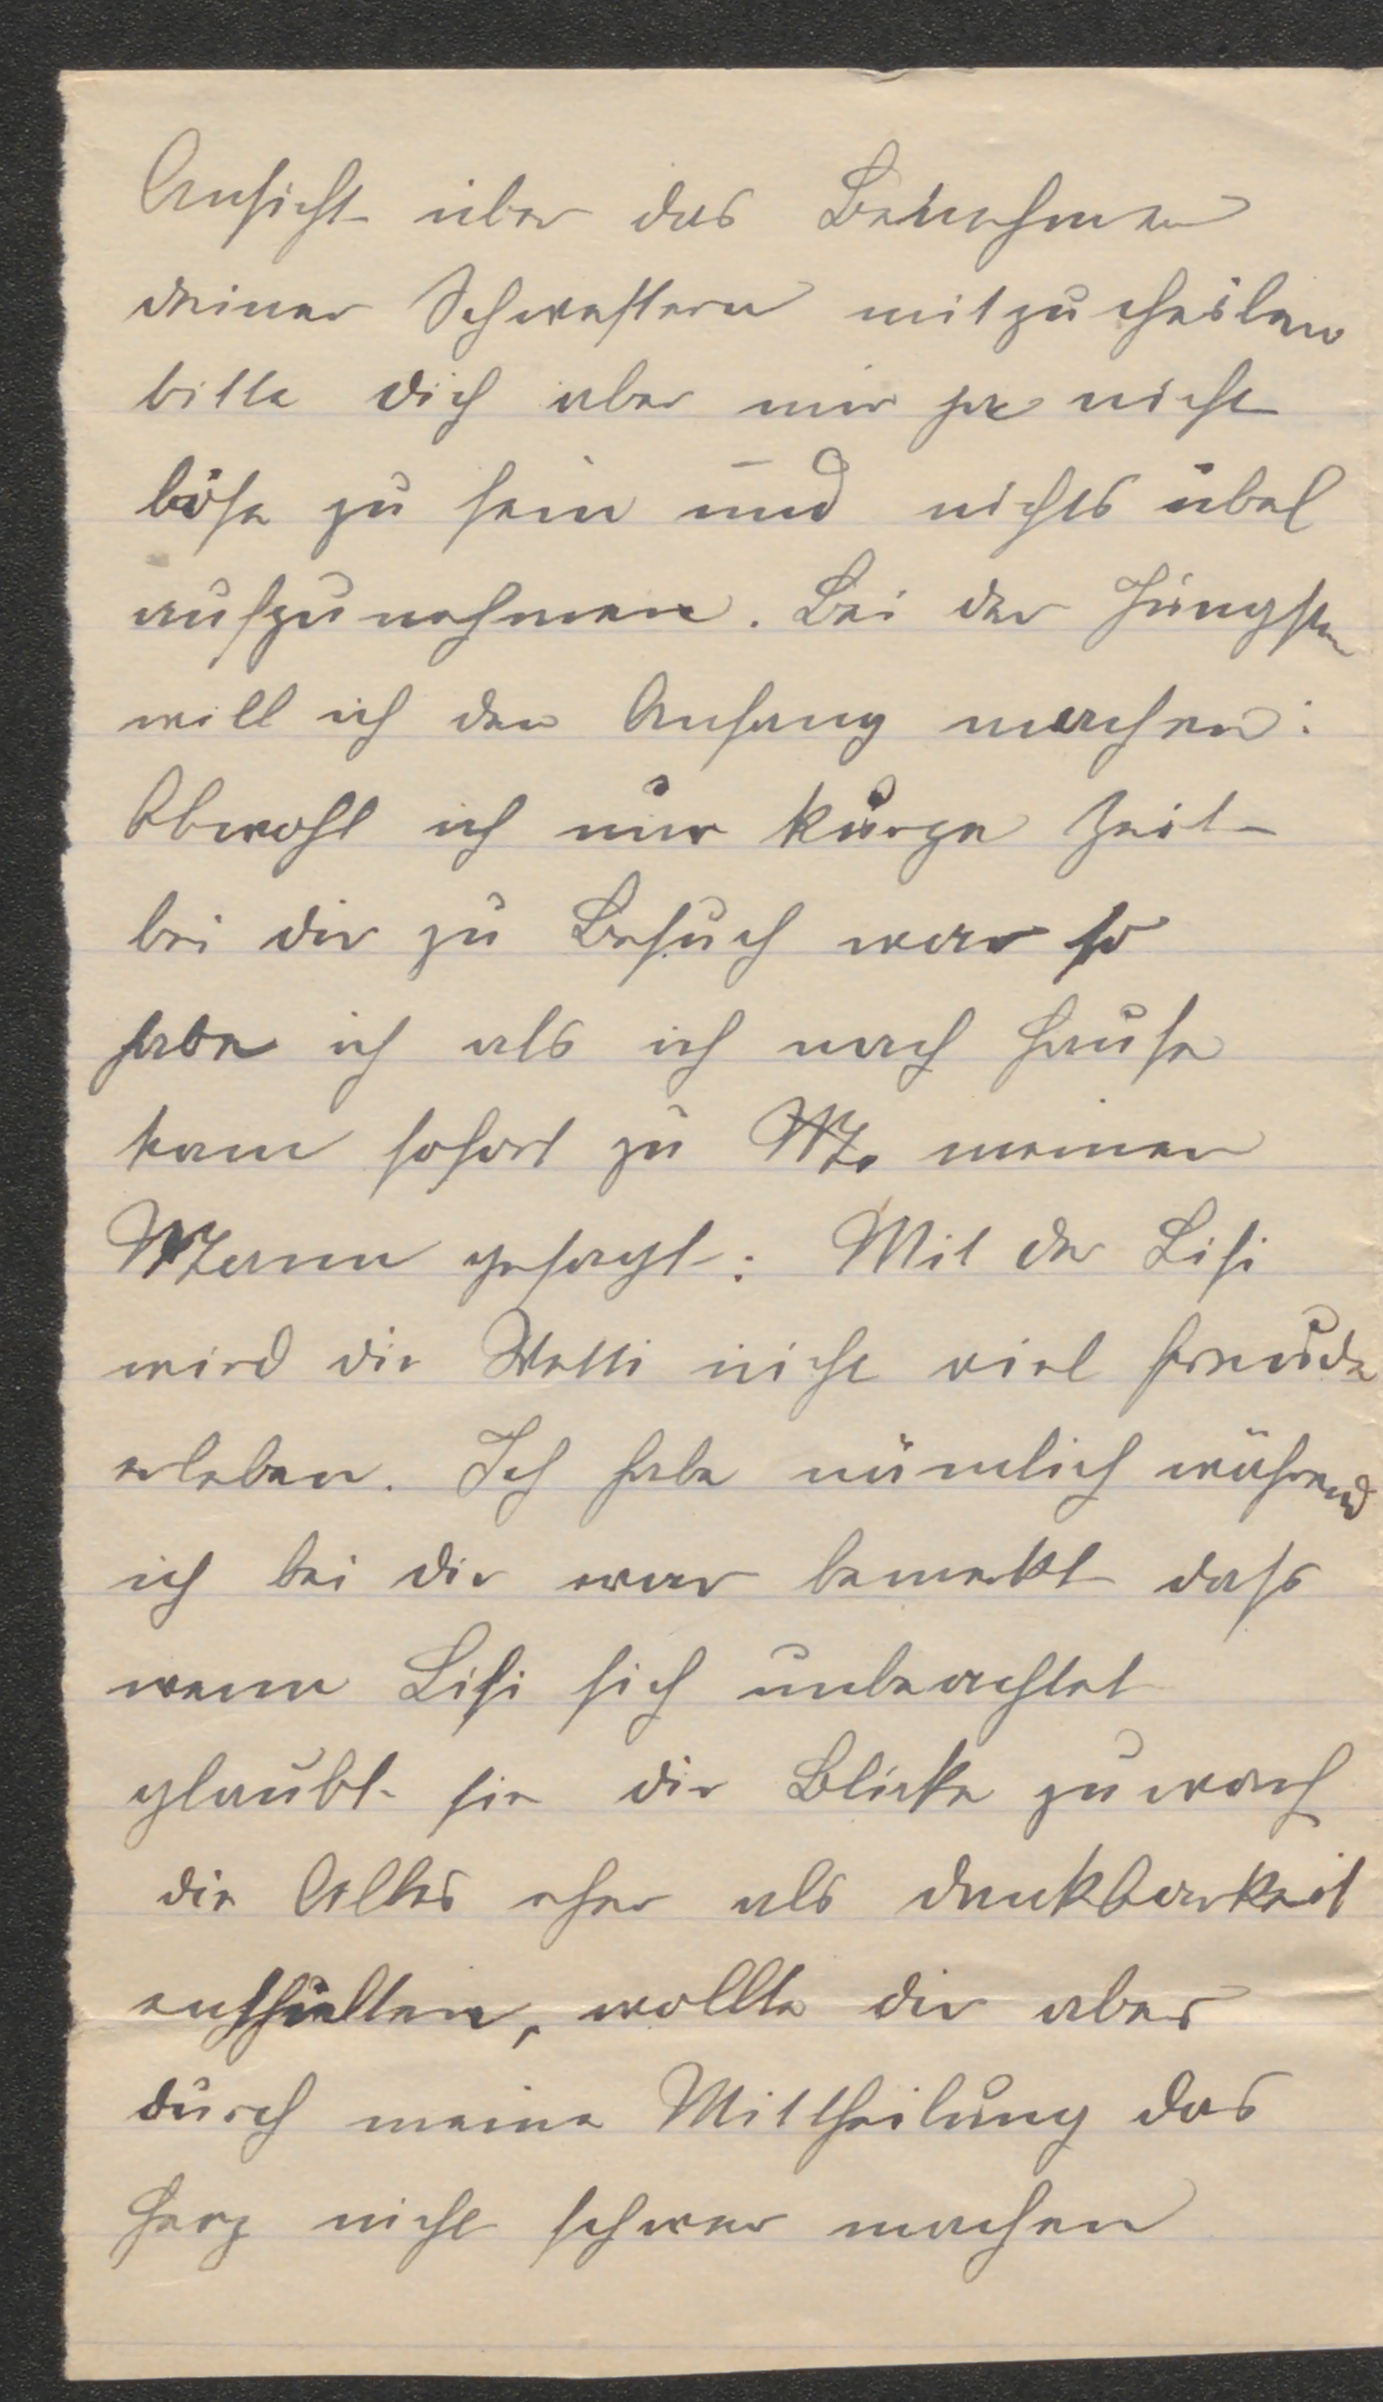 Ansicht über das Benehmen
deiner Schwestern mitzutheilen
bitte dich aber mir ja nicht
böse zu sein und nichts übel
aufzunehmen. Bei der Jüngsten
will ich den Anfang machen:
Obwohl ich nur kurze Zeit
bei dir zu Besuch war so
habe ich als ich nach Hause
kam sofort zu meinen
Mann gesagt: Mit der Lisi
wird die Wetti nicht viel Freude
erleben. Ich habe nämlich während
ich bei dir war bemerkt dass
wenn Lisi sich unbeachtet
glaubt sie dir Blicke zuwarf
die Alles eher als dankbarkeit
enthielten, wollte dir aber
durch meine Mittheilung das
Herz nicht schwer machen